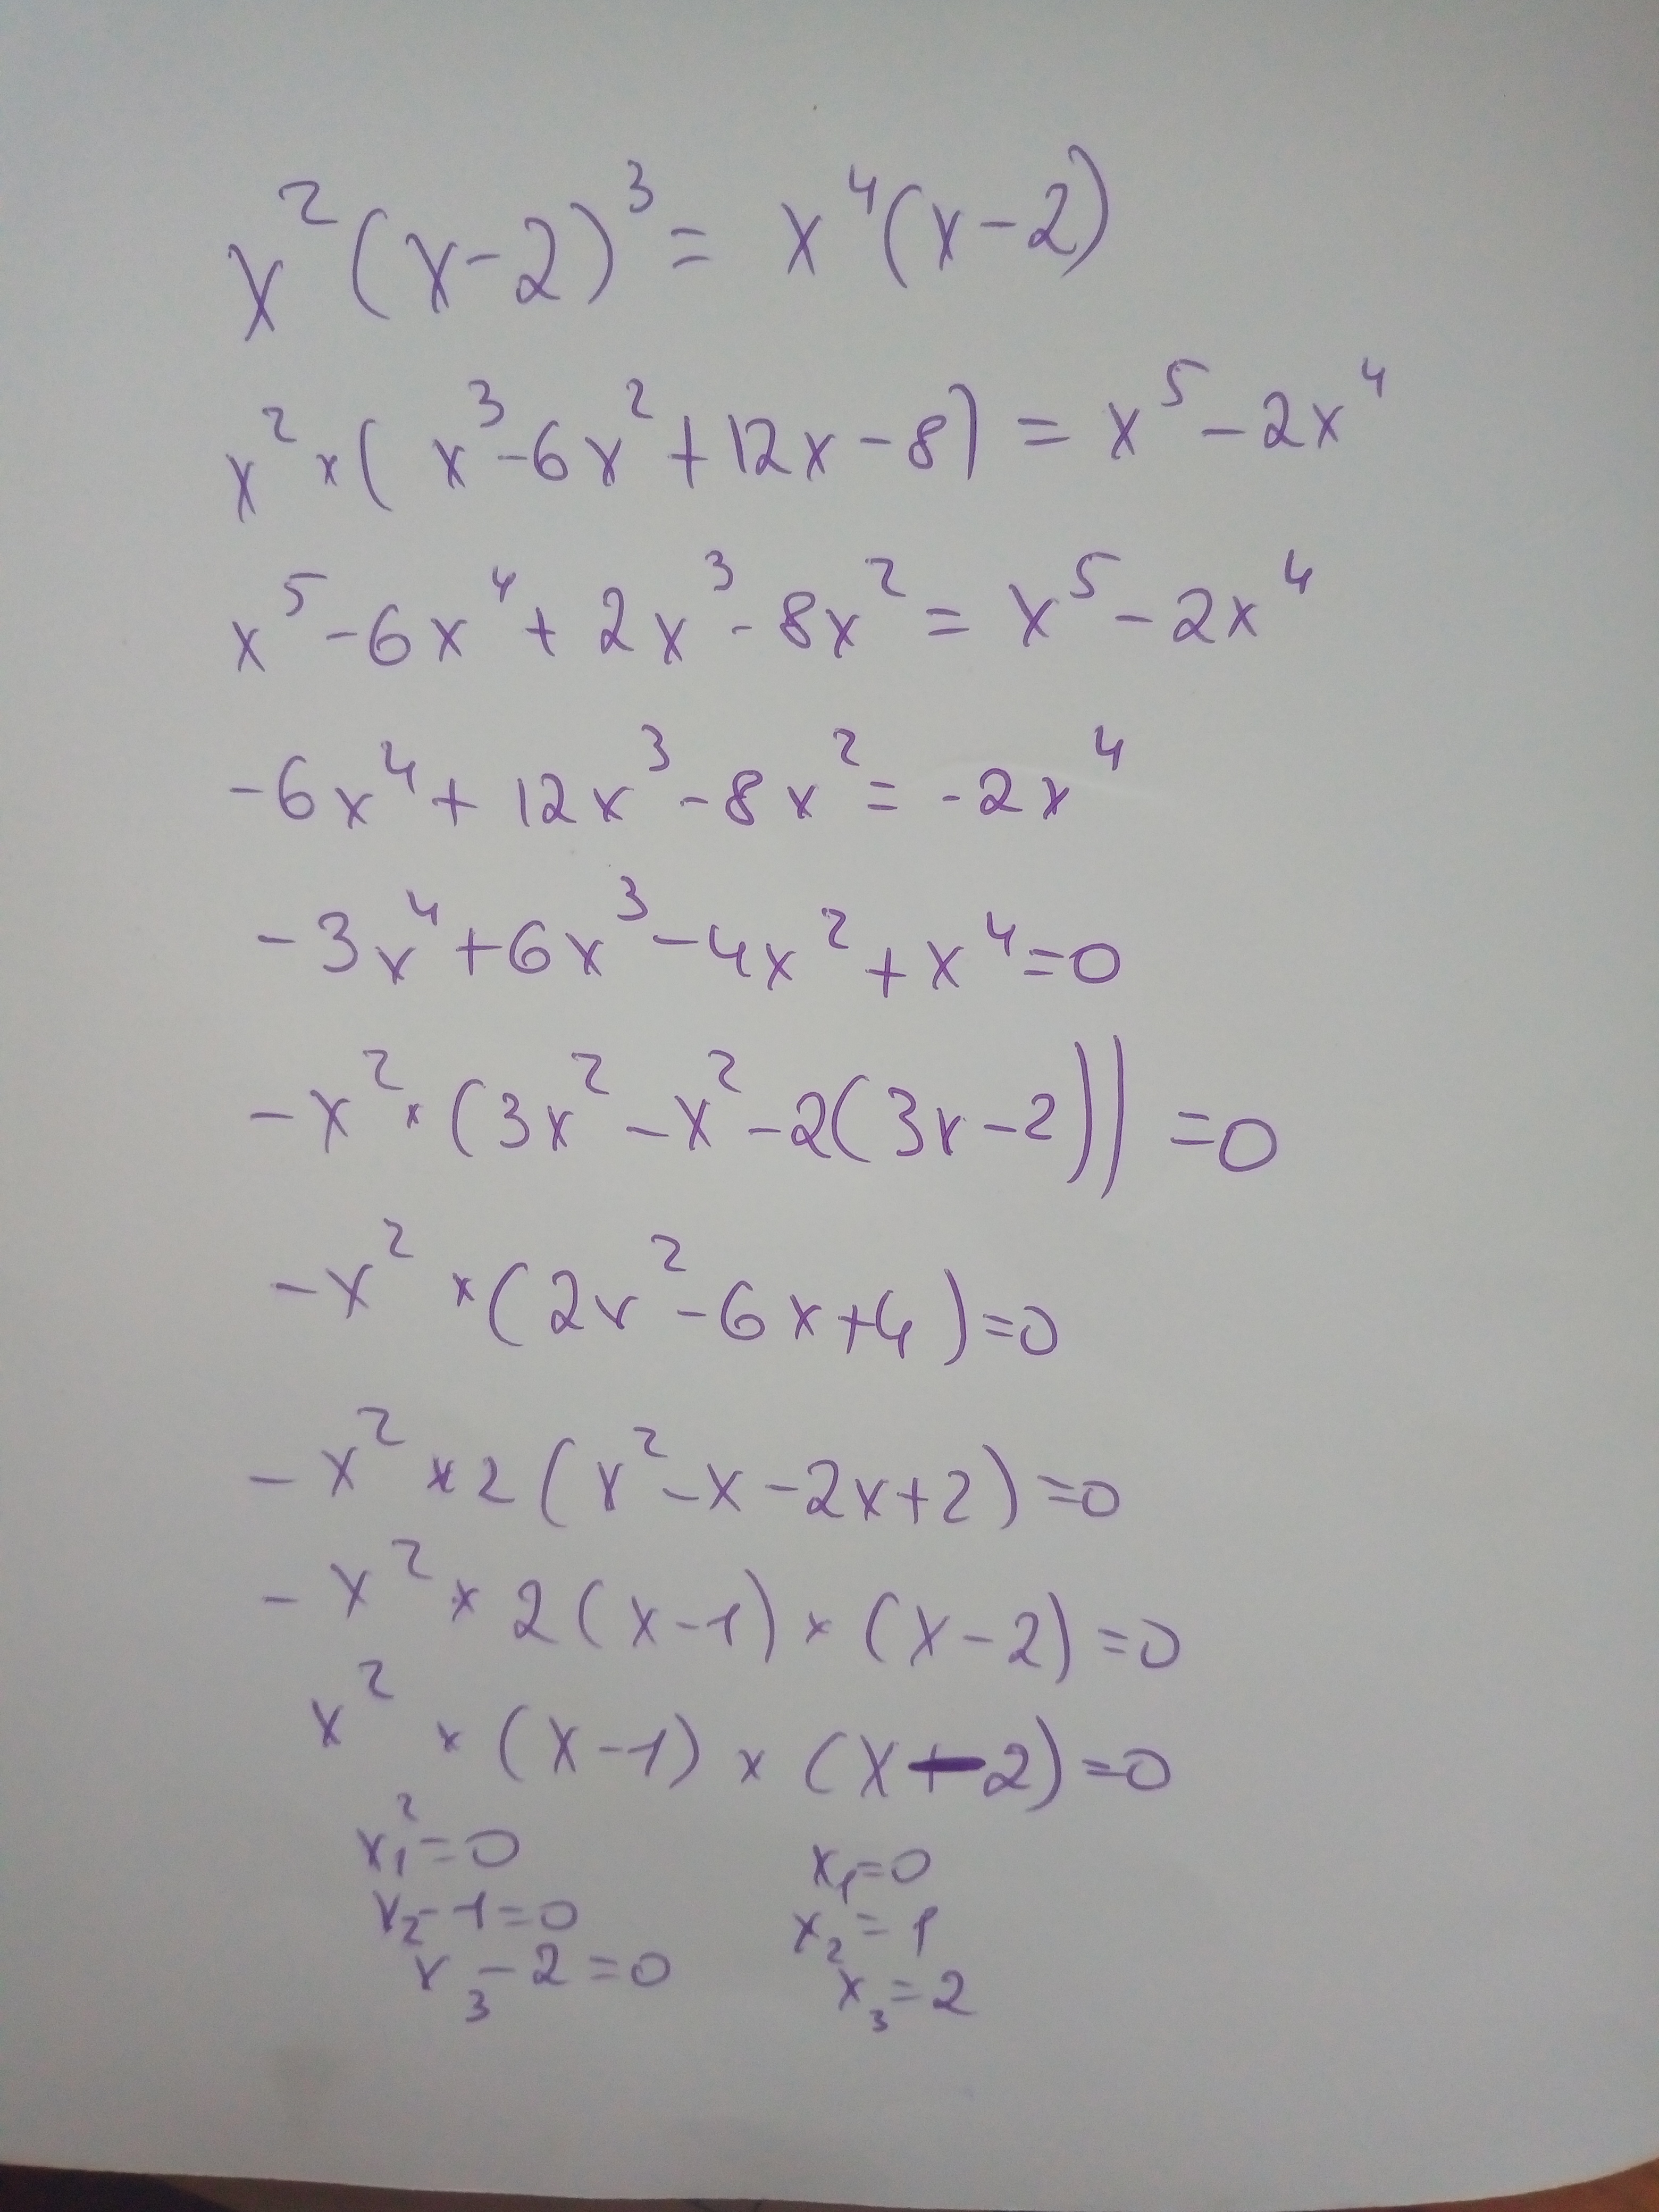 x²(x-2)³ = x⁴(x-2)
x² × (x³-6x²+12x-8) = x⁵-2x⁴
x⁵-6x⁴+2x³-8x² = x⁵-2x⁴
-6x⁴+12x³-8x² = -2x⁴
-3x⁴+6x³-4x²+x⁴=0
-x² × (3x²-x²-2(3x-2)) =0
-x² × (2x²-6x+4)=0
-x² × 2(x²-x-2x+2)=0
-x² × 2(x-1) × (x-2)=0
x² × (x-1) × (x-2)=0
x₁²=0 x₁=0
x₂-1=0 x₂=1
x₃-2=0 x₃=2